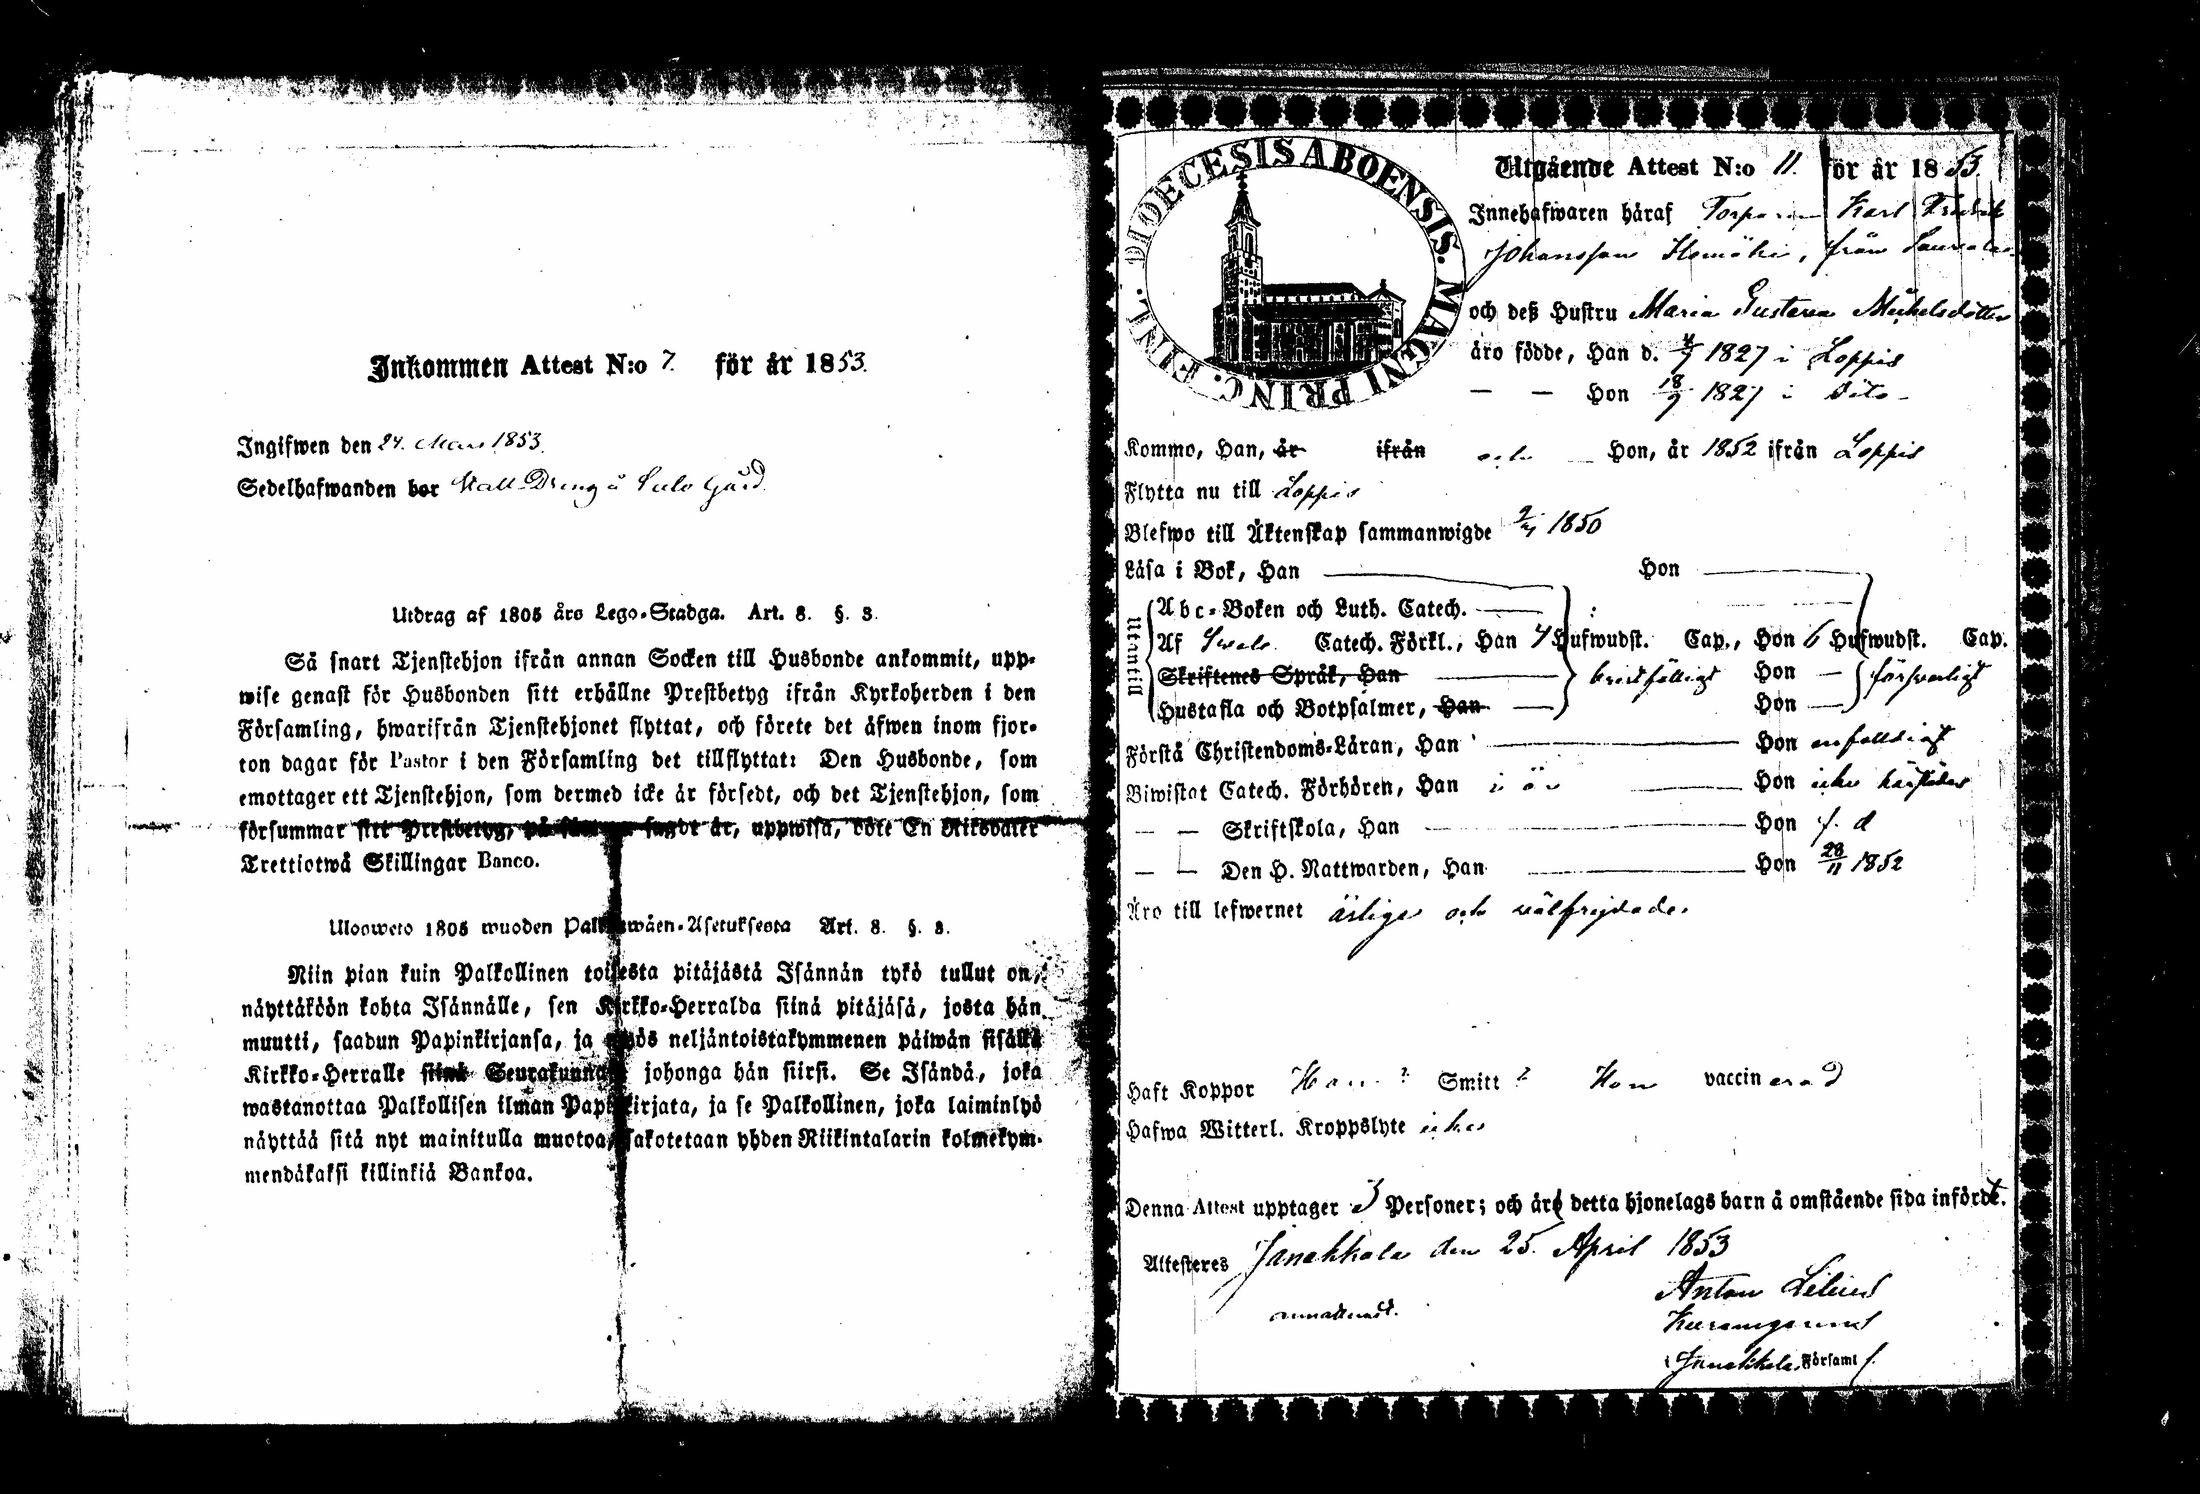 Inkommen Attest N:o 7. för år 1853.
Ingifwen den 24. Mars 1853.
Sedelhafwanden bor Stall Dreng å Gård.
Utdrag af 1805 års Lego-Stadga. Art. 8. §. 3.
Så snart Tjenstehjon ifrån annan Socken till Husbonde ankommit, upp-
wise genast för Husbonden sitt erhållne Prestbetyg ifrån Kyrkoherden i den
Församling, hwarifrån Tjenstehjonet flyttat, och förete det äfwen inom fjor-
ton dagar för Pastor i den Församling det tillflyttat: Den Husbonde, som
emottager ett Tjenstehjon, som dermed icke är försedt, och det Tjenstehjon, som
försummar sitt Prestbetyg, på sagdt är, uppwisa, böte En Riksdaler
Trettiotwå Skillingar Banco.
Ulosweto 1805 wuoden Palkkawäen-Asetuksesta Art. 8. §. 3.
Niin pian kuin Palkollinen toisesta pitäjästä Isännän tykö tullut on,
näyttäköön kohta Isännälle, sen Kirkko-Herralda siinä pitäjäsä, josta hän
muutti, saadun Papinkirjansa, ja myös neljäntoistakymmenen päiwän sisällä
Kirkko-Herralle siinä Seurakunnasa johonga hän siirsi. Se Isändä, joka
wastanottaa Palkollisen ilman Papinkirjata, ja se Palkollinen, joka laiminlyö
näyttää sitä nyt mainitulla muotoa, sakotetaan yhden Riikintalarin kolmekym-
mendäkaksi killinkiä Bankoa.
DIOECESIS ABOENSIS. MAGNI PRINC. FINL.
Utgående Attest N:o 11. för år 1853.
Innehafwaren häraf Torparen Karl Fredrik
Johansson , från
och deß Hustru Maria Gustava Michelsdotter
äro födde, Han d. 1827 i Loppis
— — Hon 18/9 1827 i dito
Kommo, Han, år ifrån och Hon, år 1852 ifrån Loppis
Flytta nu till Loppis
Blefwo till Äktenskap sammanwigde 1850
Läsa i Bok, Han Hon
Utantill
Abc-Boken och Luth. Catech.
Af Catech. Förkl., Han 4 Hufwudst. Cap., Hon 6 Hufwudst. Cap.
Skriftenes Språk, Han bristfälligt Hon försvarligt
Hustafla och Botpsalmer, Han Hon
Förstå Christendoms-Läran, Han Hon enfaldigt
Biwistat Catech. Förhören, Han i år Hon icke härstädes
— — Skriftskola, Han Hon f. d
— — Den H. Nattwarden, Han Hon 28/11 1852
Äro till lefwernet ärliga och välfrejdade
Haft Koppor Han ? Smitt ? Hon vaccinerad
Hafwa Witterl. Kroppslyte icke
Denna Attest upptager 3 Personer; och äro detta hjonelags barn å omstående sida införde.
Attesteres Janakkala den 25. April 1853
Anton Lilius
i Janakkala Församl.